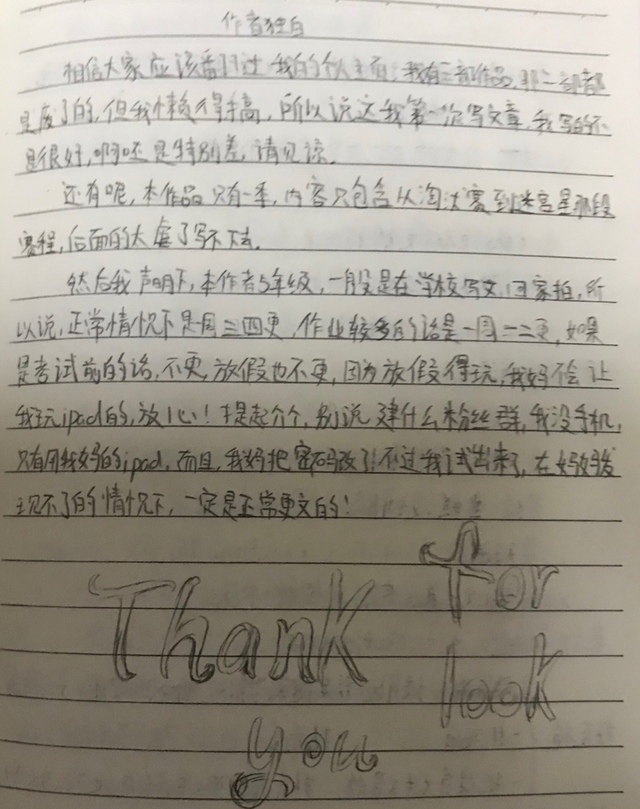 作者独白
相信大家应该看到过我的个人主页,我有三部作品,那二部都
是废了的,但我懒得搞,所以说这我第一次写文章,我写的不
是很好,啊还是特别差,请见谅.
还有呢,本作品只有一季,内容只包含从淘汰赛到迷宫星那段
赛程,后面的太虐了写不下去.
然后我声明下,本作者5年级,一般是在学校写文,回家拍,所
以说,正常情况下是周三四更,作业较多的话是一周一二更,如果
是考试前的话,不更,放假也不更,因为放假得玩,我妈不会让
我玩ipad的,放心!提起个,别说建什么粉丝群,我没手机,
只有用我妈的ipad,而且,我妈把密码改了!不过我试出来了,在妈妈发
现不了的情况下,一定是正常更文的!
Thank for
you look